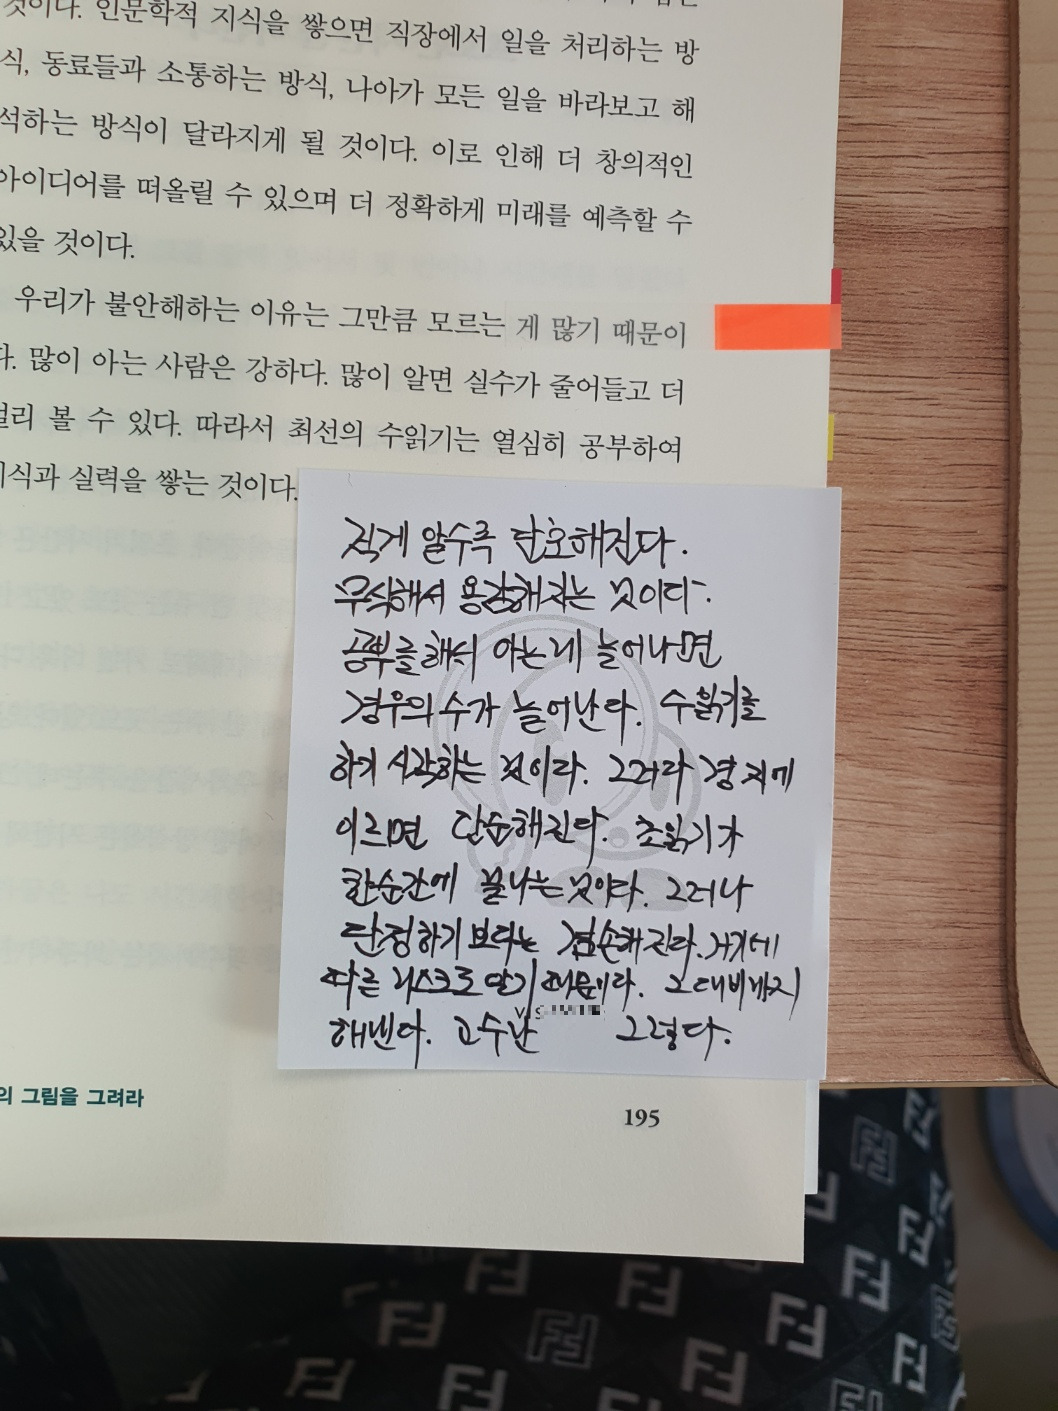 것이다. 인문학적 지식을 쌓으면 직장에서 일을 처리하는 방
식, 동료들과 소통하는 방식, 나아가 모든 일을 바라보고 해
석하는 방식이 달라지게 될 것이다. 이로 인해 더 창의적인
아이디어를 떠올릴 수 있으며 더 정확하게 미래를 예측할 수
있을 것이다.
우리가 불안해하는 이유는 그만큼 모르는 게 많기 때문이
다. 많이 아는 사람은 강하다. 많이 알면 실수가 줄어들고 더
멀리 볼 수 있다. 따라서 최선의 수읽기는 열심히 공부하여
지식과 실력을 쌓는 것이다.
적게 알수록 단호해진다.
무식해서 용감해지는 것이다.
공부를 해서 아는 게 늘어나면
경우의 수가 늘어난다. 수읽기를
하기 시작하는 것이다. 그러다 경지에
이르면 단순해진다. 초읽기가
한순간에 끝나는 것이다. 그러나
단정하기 보다는 겸손해진다. 거기에
따른 리스크도 알기 때문이다. 그 대비까지
해낸다. 고수난 그렇다.
의 그림을 그려라
195